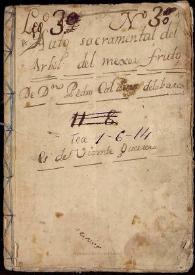 Leg.º 3.º N.º 3.º
Auto sacramental del
Arbol del mexor fruto
De Dⁿ Pedro Calderon de la barca
Tea 1-6-14
Es de Vicente